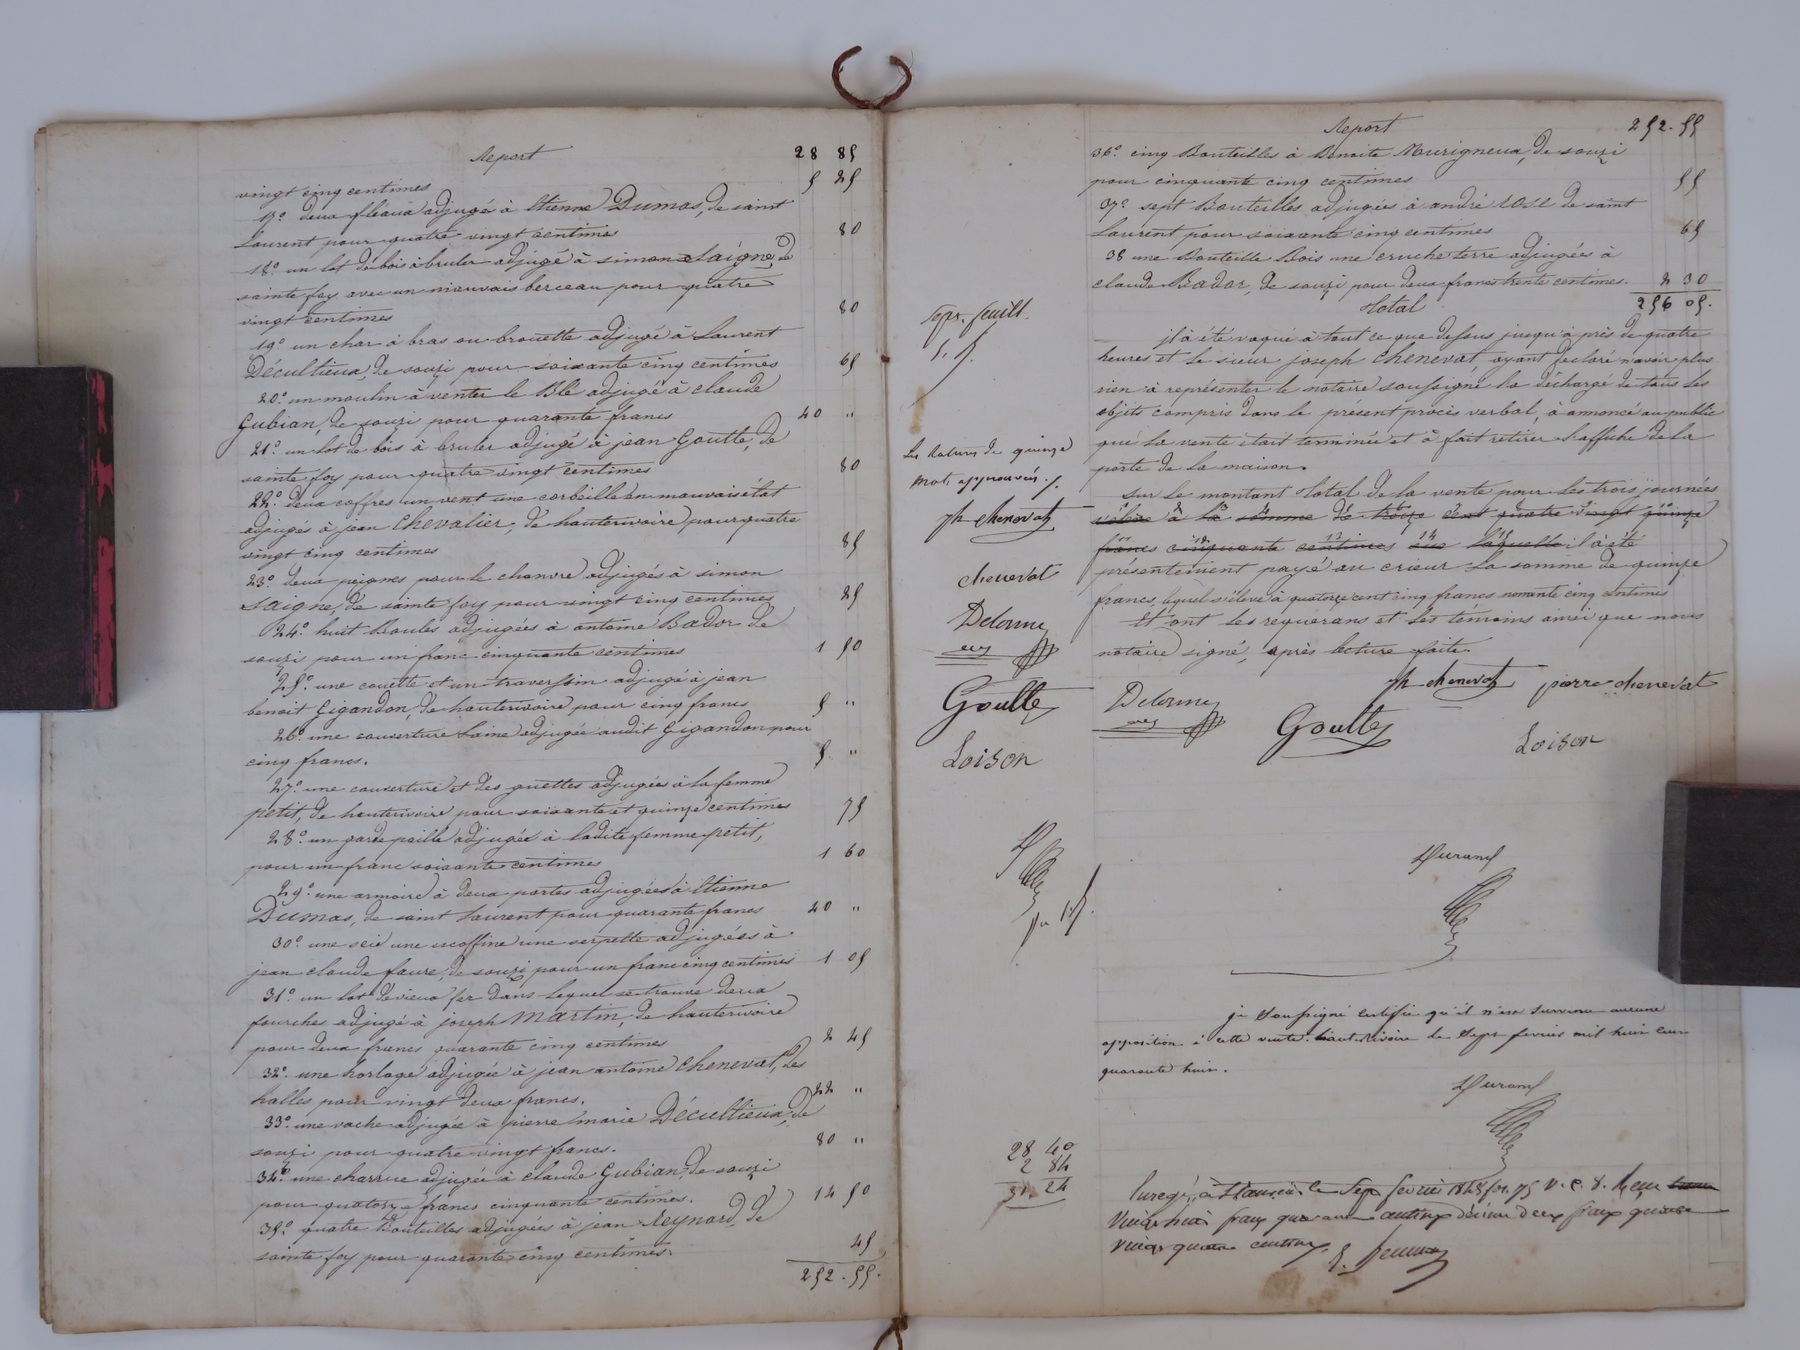 Report 28 85
vingt cinq centimes 5 25
17.° deux fléaux adjugé à Etienne Dumas, de saint
Laurent pour quatre vingt centimes 80
18.° un lot de bois à bruler adjugé à simon Saigne, de
sainte foy avec un mauvais berceau pour quatre
vingt centimes 80
19.° un char à bras ou brouette adjugé à Laurent
Décultieux, de souzi pour soixante cinq centimes 65
20.° un moulin à venter le Blé adjugé à claude
Gubian, de souzi pour quarante francs 40 "
21.° un lot de bois à bruler adjugé à jean Goutte, de
sainte foy pour quatre vingt centimes 80
22.° deux coffres un vent une corbeille en mauvais état
adjugés à jean Chevalier, de hauterivoire pour quatre
vingt cinq centimes 85
23.° deux peignes pour le chanvre adjugés à simon
Saigne, de sainte foy pour vingt cinq centimes 25
24.° huit Boules adjugées à antoine Bador de
souzi pour un franc cinquante centimes 1 50
25.° une couette et un traversin adjugé à jean
benoit Gigandon, de hauterivoire pour cinq francs 5 "
26.° une couverture Laine adjugée audit Gigandon pour
cinq francs. 5 "
27.° une couverture et des guettes adjugées à la femme
petit, de hauterivoire pour soixante et quinze centimes 75
28.° un garde paille adjugée à ladite femme petit,
pour un franc soixante centimes 1 60
29.° une armoire à deux portes adjugées à Etienne
Dumas, de saint Laurent pour quarante francs 40 "
30.° une scie une escoffine une serpette adjugées à
jean claude faure, de souzi pour un franc cinq centimes 1 05
31.° un lot de vieux fer dans lequel se trouve deux
fourches adjugé à joseph Martin, de hauterivoire
pour deux francs quarante cinq centimes 2 45
32.° une horloge adjugée à jean antoine Chenevat, des
halles pour vingt deux francs. 22 "
33.° une vache adjugée à pierre marie Décultieux, de
souzi pour quatre vingt francs. 80 "
34.° une charrue adjugée à claude Gubian, de souzi
pour quatorze francs cinquante centimes. 14 50
35.° quatre Bouteilles adjugées à jean Reynard, de
sainte foy pour quarante cinq centimes. 45
252.55.
sept. feuill.
Les Ratures de quinze
mots approuvées ./.
jh chenevat
chenevat
Delorme
Goutte
Loison
28 40
2 84
31. 24
Report 252.55
36.° cinq Bouteilles à Benoite Murigneux, de souzi
pour cinquante cinq centimes 55
37.° sept Bouteilles adjugées à andré Rose de saint
Laurent pour soixante cinq centimes 65
38 une Bouteille Bois une cruche terre adjugées à
claude Bador, de souzi pour deux francs trente centimes. 2 30
Total 256 05.
il a été vaqué à tout ce que dessus jusqu'à près de quatre
heures et le sieur joseph Chenevat, ayant declaré n'avoir plus
rien à représenter le notaire soussigné l'a déchargé de tous les
objets compris dans le présent procès verbal, à annoncé au public
que la vente était terminée et à fait retirer l'affiche de la
porte de la maison.
Sur le montant Total de la vente pour les trois journées
à la somme de treize cent quatre vingt quinze
francs cinquante centimes sur laquelle il à été
présentement payé au crieur la somme de quinze
francs, lequel s'éleve à quatorze cent cinq francs nonante cinq centimes
Et ont les réquerans et les témoins ainsi que nous
notaire signé, après lecture faite.
jh chenevat pierre chenevat
Delorme Goutte Loison
Durand
je soussigné certifie qu'il n'est survenu aucune
opposition à cette vente. haute-Rivoire le sept fevrier mil huit cent
quarante huit.
Durand
Enregé, à le sept fevrier 1848 fo. 75 v. c. 8. Reçu
vingt huit francs quarante centimes décime deux francs quatre
vingt quatre centimes.